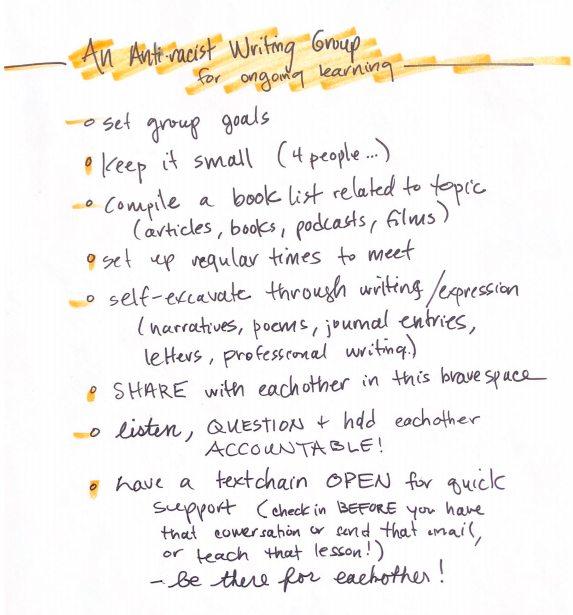 An Anti-racist Writing Group
for ongoing learning
set group goals
keep it small (4 people...)
compile a book list related to topic
(articles, books, podcasts, films)
set up regular times to meet
self-excavate through writing/expression
(narratives, poems, journal entries,
letters, professional writing.)
SHARE with eachother in this brave space
listen, QUESTION + hold eachother
ACCOUNTABLE!
have a textchain OPEN for quick
support (check in BEFORE you have
that conversation or send that email,
or teach that lesson!)
- Be there for eachother!